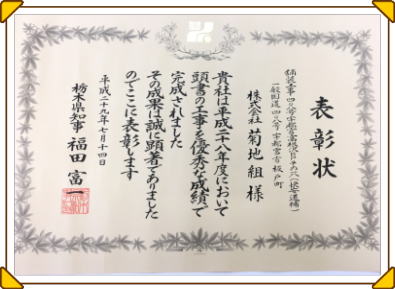 表彰状
一般国道四〇八号 宇都宮市 板戸町
株式会社 菊地組 様
貴社は平成二十八年度において
頭書の工事を優秀な成績で
完成されました
その成果は誠に顕著でありました
のでここに表彰します
平成二十九年七月十四日
栃木県知事 福田富一